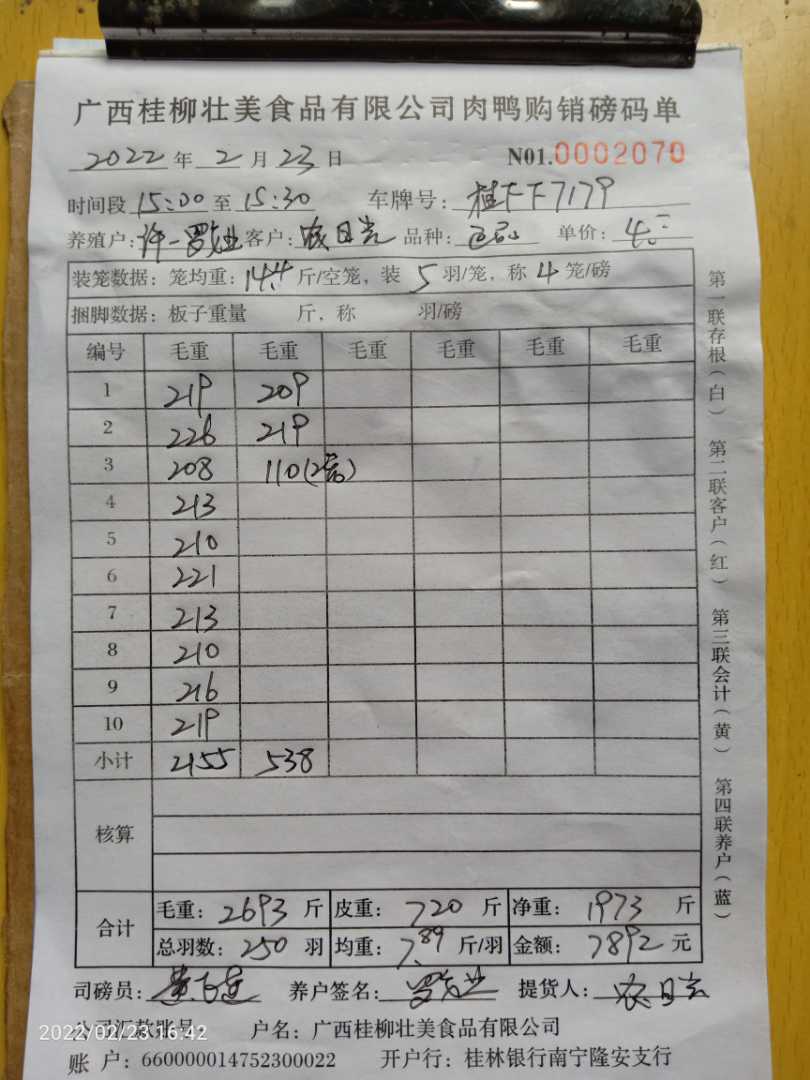 广西桂柳壮美食品有限公司肉鸭购销磅码单
2022 年 2 月 23 日 N01.0002070
时间段 15:00 至 15:30 车牌号: 7179
养殖户: 许一罗 客户: 农日 品种: 单价: 4.
装笼数据: 笼均重: 14.4 斤/空笼, 装 5 羽/笼, 称 4 笼/磅
捆脚数据: 板子重量 斤, 称 羽/磅
编号 毛重 毛重 毛重 毛重 毛重 毛重
1 219 209
2 226 219
3 208 110(2笼)
4 213
5 210
6 221
7 213
8 210
9 216
10 219
小计 2155 538
核算
合计 毛重: 2693 斤 皮重: 720 斤 净重: 1973 斤
总羽数: 250 羽 均重: 7.89 斤/羽 金额: 7892 元
司磅员: 养户签名: 罗 提货人: 农日
公司汇款账号: 户名: 广西桂柳壮美食品有限公司
账 户: 660000014752300022 开户行: 桂林银行南宁隆安支行
2022/02/23 16:42
第一联存根(白) 第二联客户(红) 第三联会计(黄) 第四联养户(蓝)